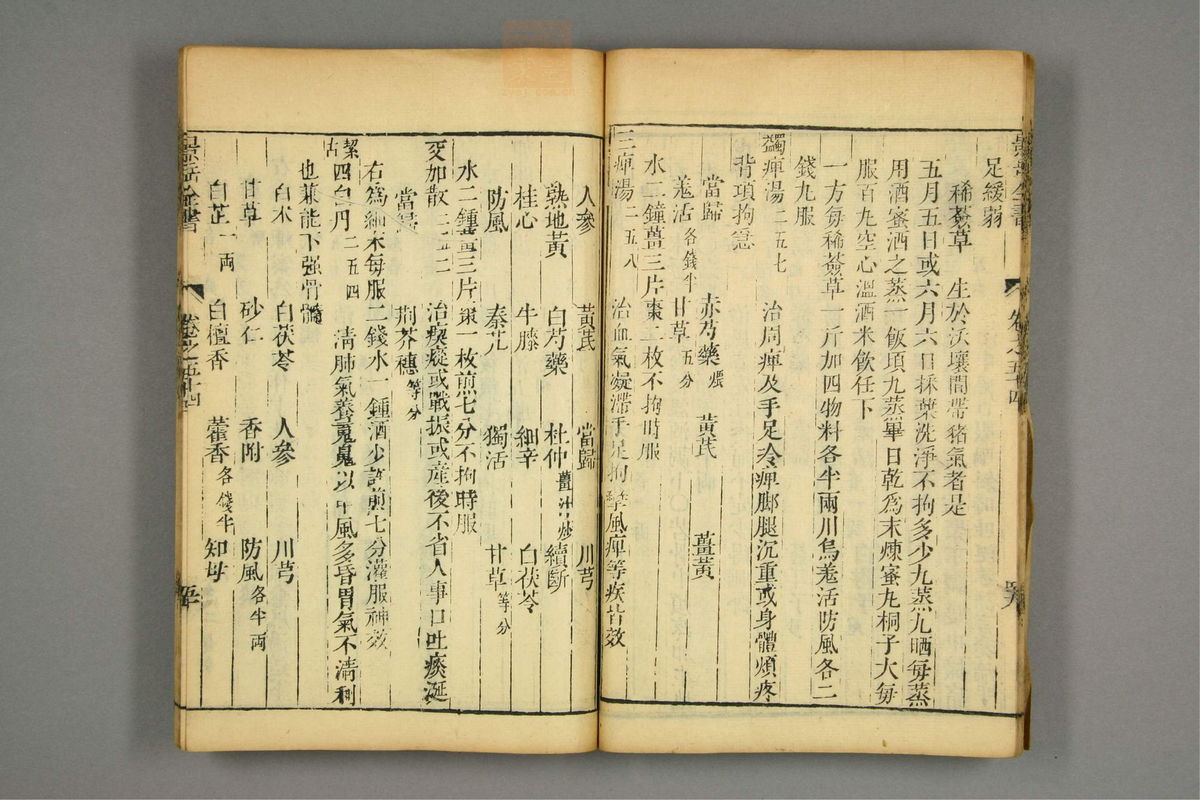 景岳全書 卷之五十四
足緩弱
稀薟草 生於沃壤間帶猪氣者是
五月五日或六月六日採葉洗淨不拘多少九蒸九晒每蒸
用酒蜜洒之蒸一飯頃九蒸畢日乾爲末煉蜜丸桐子大每
服百丸空心溫酒米飲任下
一方每稀薟草一斤加四物料各半兩川烏羗活防風各二
錢丸服
蠲痺湯 二五七 治周痺及手足冷痺脚腿沉重或身體煩疼
背項拘急
當歸 赤芍藥 煨 黃芪 薑黃
羗活 各錢半 甘草 五分
水二鐘薑三片棗二枚不拘時服
三痺湯 二五八 治血氣凝滯手足拘攣風痺等疾皆效
人參 黃芪 當歸 川芎
熟地黃 白芍藥 杜仲 薑汁炒 續斷
桂心 牛膝 細辛 白茯苓
防風 秦艽 獨活 甘草 等分
水二鍾薑三片棗一枚煎七分不拘時服
交加散 二五二 治瘈瘲或戰振或産後不省人事口吐痰涎
當歸 荆芥穗 等分
右為細末每服二錢水一鍾酒少許煎七分灌服神效
潔古四白丹 二五四 清肺氣養魄以中風多昏冒氣不清利
也兼能下强骨髓
白术 白茯苓 人參 川芎
甘草 砂仁 香附 防風 各半兩
白芷 一兩 白檀香 藿香 各錢半 知母
景岳全書 卷之五十四